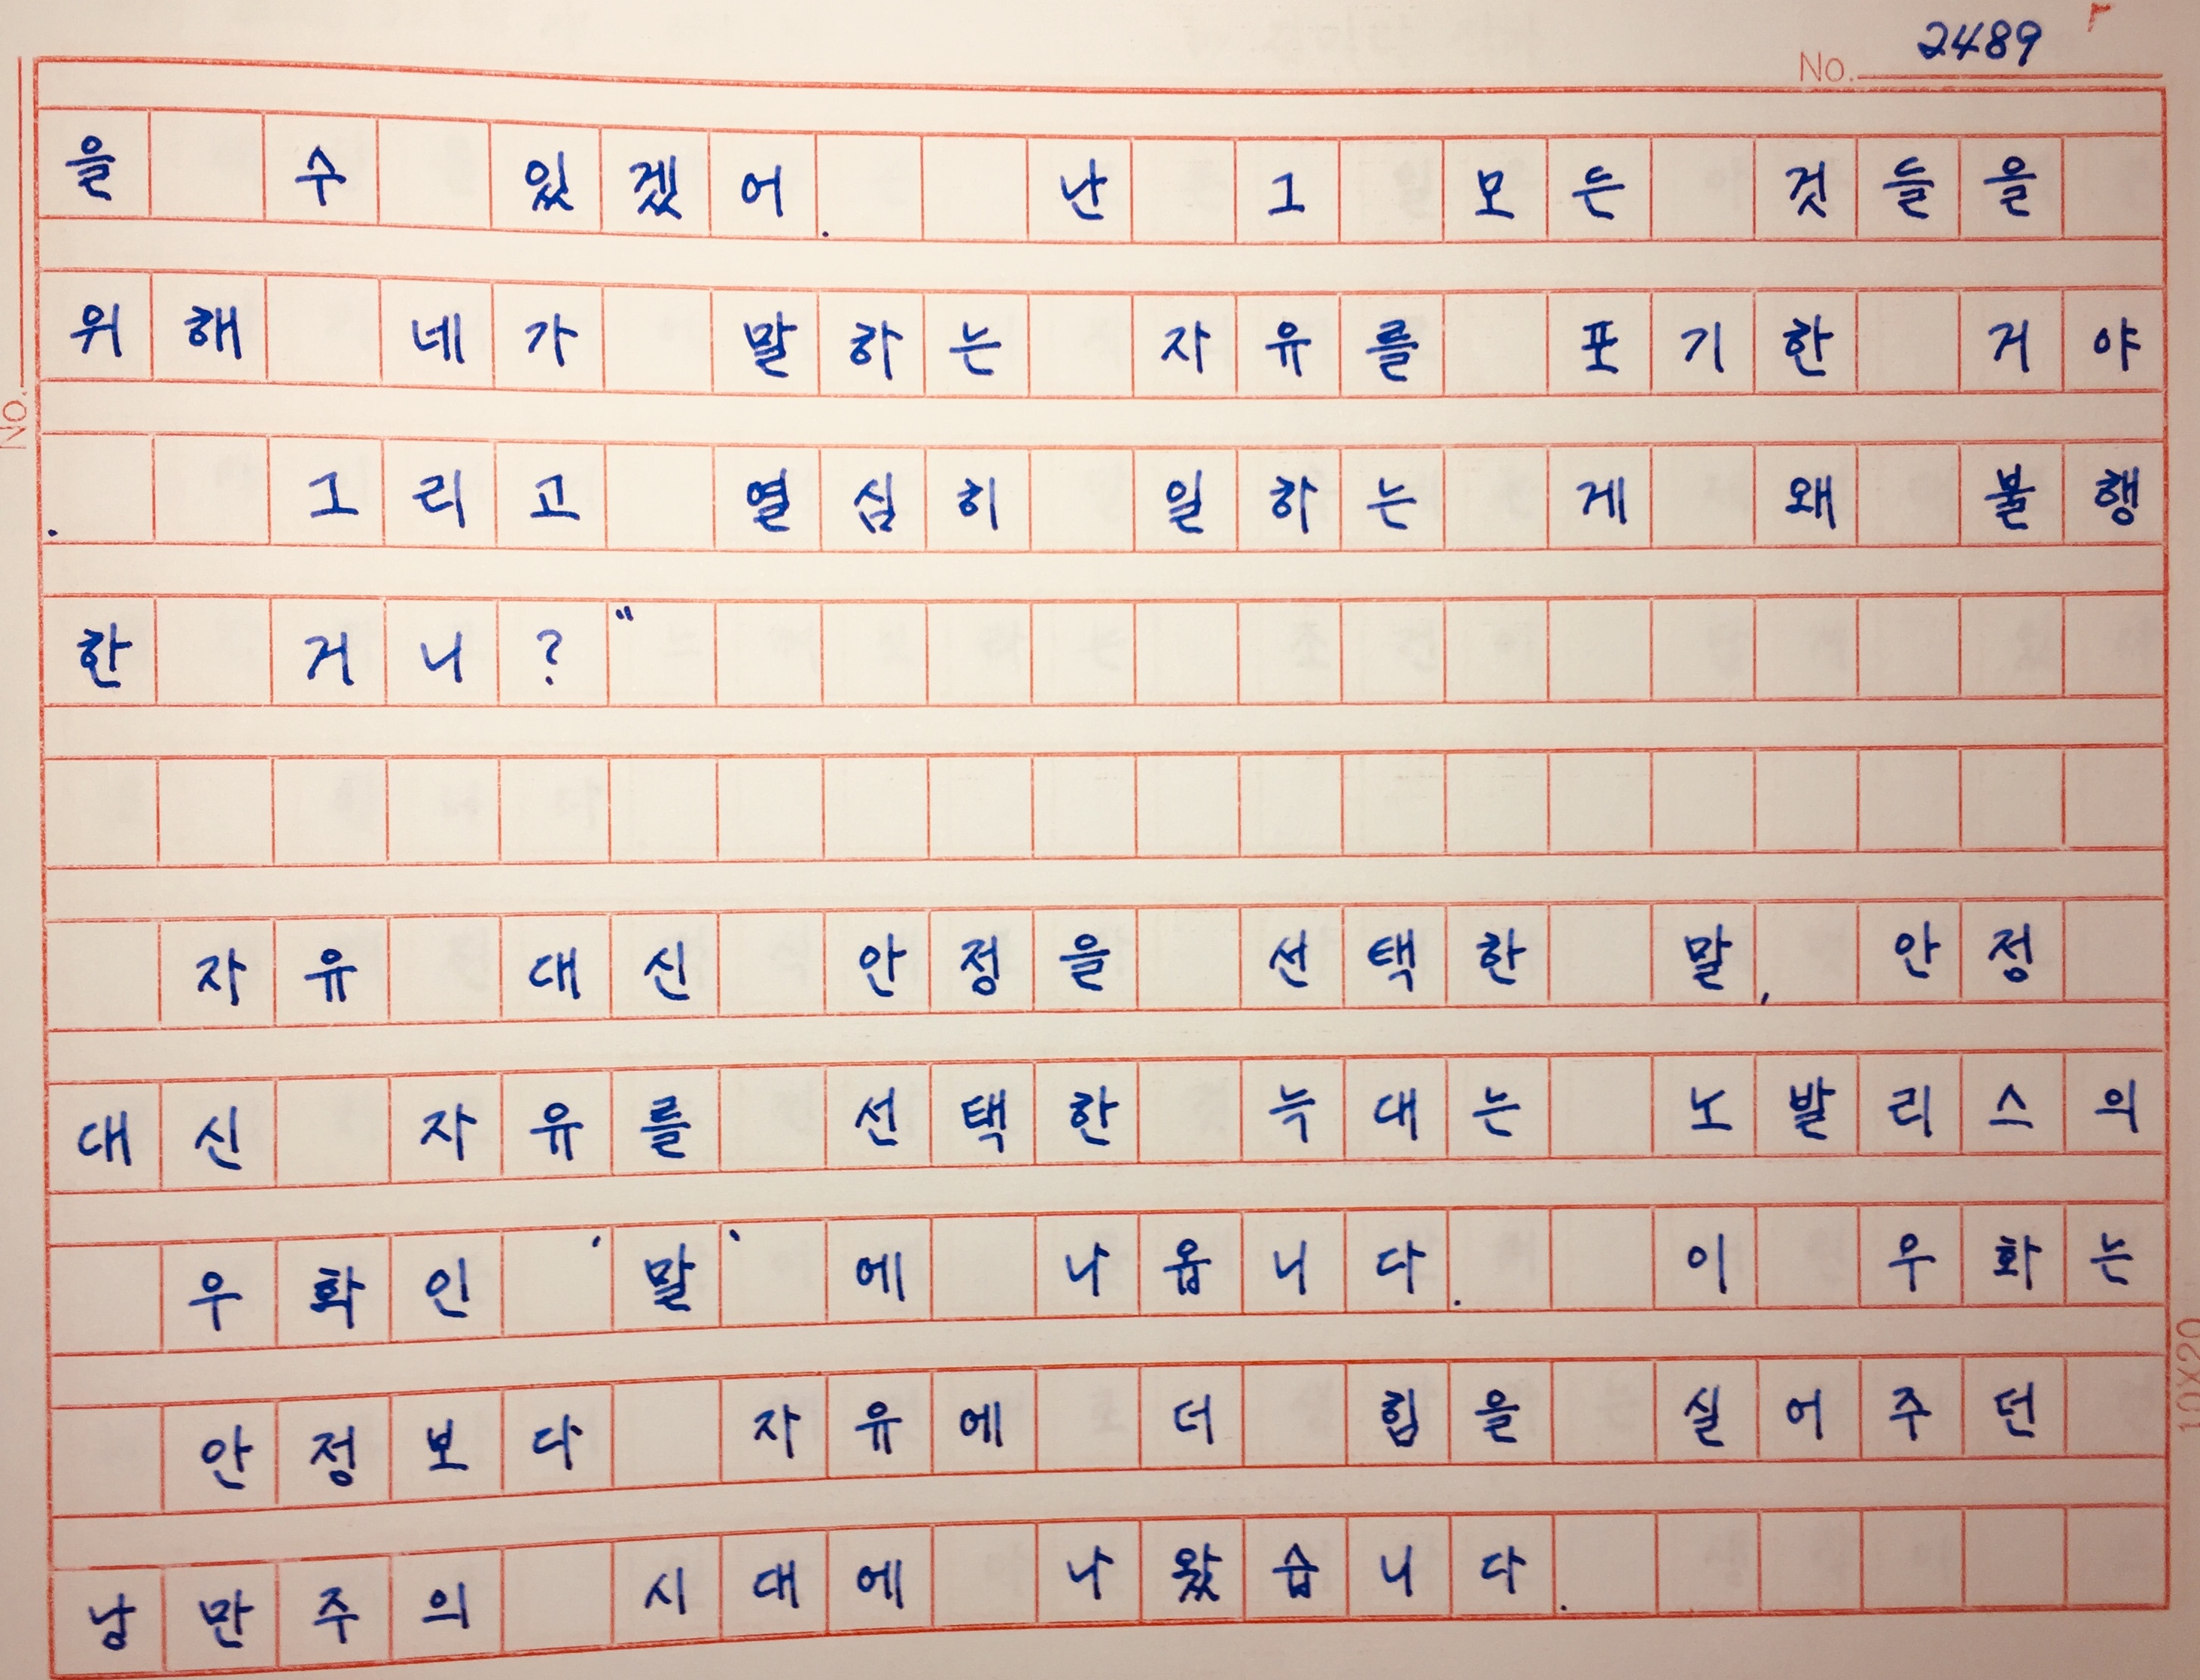 No. 2489
을 수 있겠어. 난 그 모든 것들을
위해 네가 말하는 자유를 포기한 거야
. 그리고 열심히 일하는 게 왜 불행
한 거니?"
자유 대신 안정을 선택한 말, 안정
대신 자유를 선택한 늑대는 노발리스의
우화인 '말'에 나옵니다. 이 우화는
안정보다 자유에 더 힘을 실어주던
낭만주의 시대에 나왔습니다.
No.
10X20